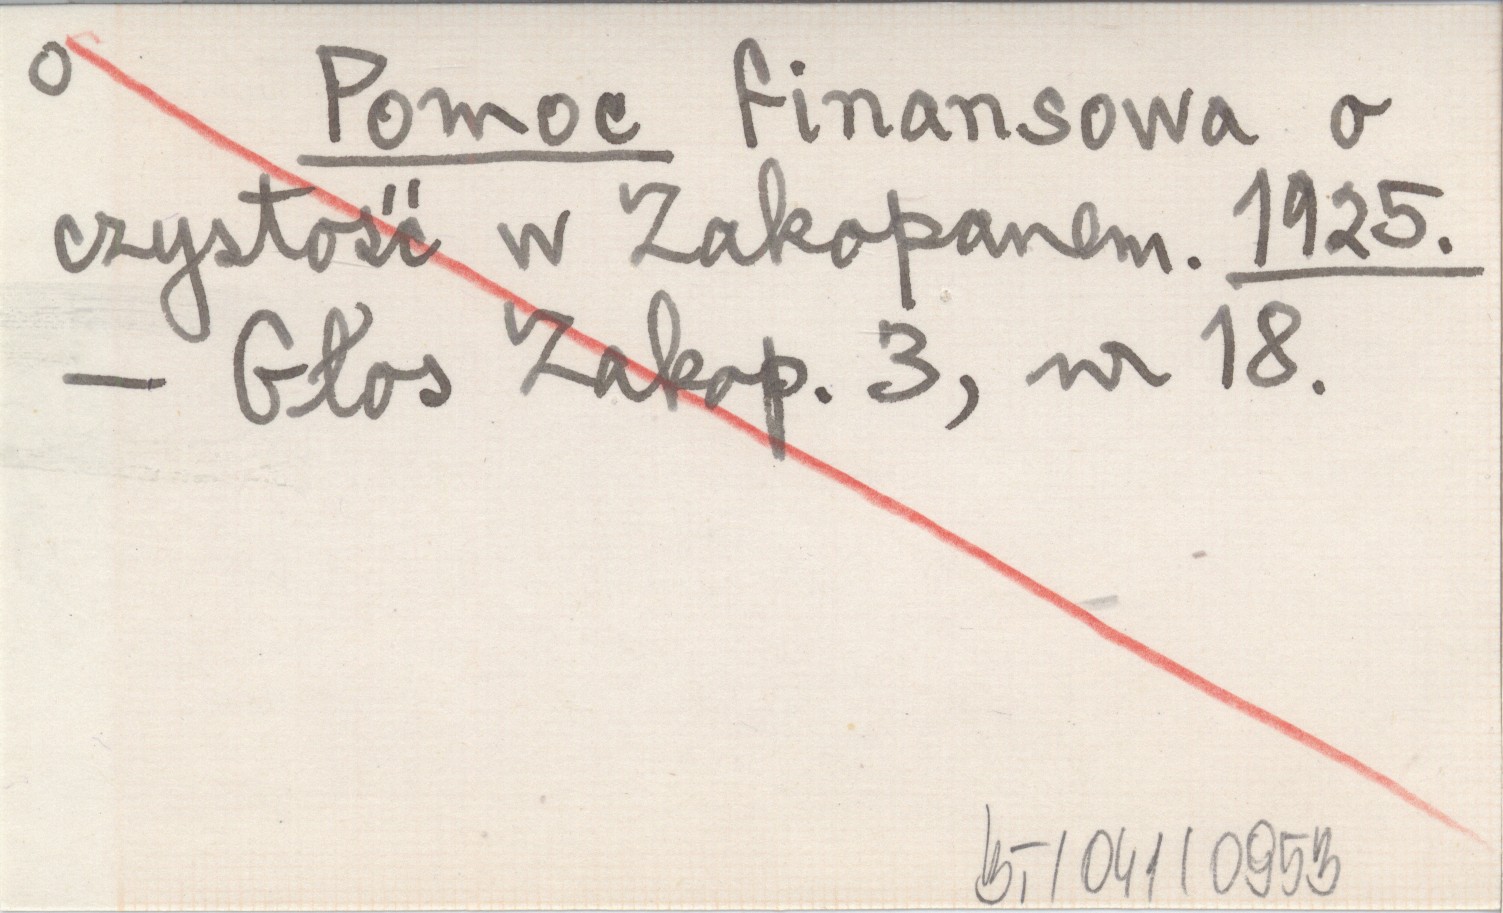 o
Pomoc finansowa o
czystość w Zakopanem. 1925.
— Głos Zakop. 3, nr 18.
/ 041 / 0953